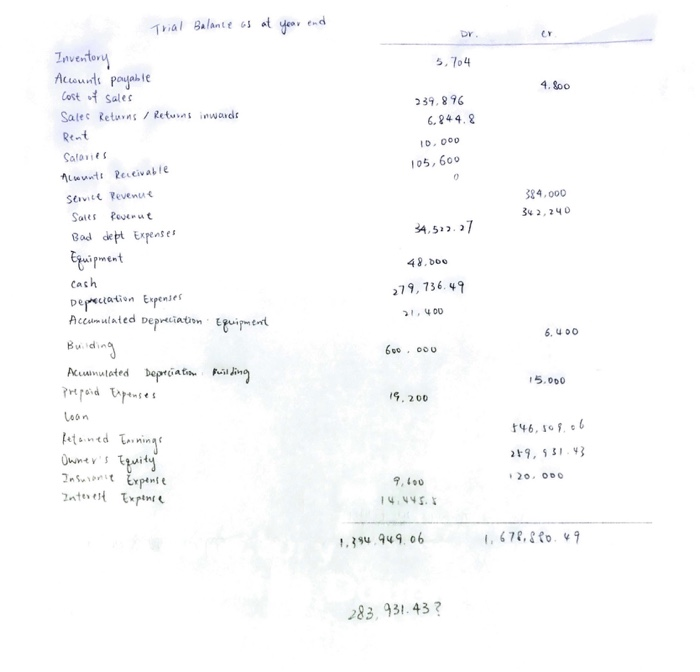 Trial Balance as at year end
Dr. Cr
Inventory 5,704
Accounts payable 4.800
Cost of Sales 239,896
Sales Returns / Returns inwards 6,844.8
Rent 10,000
Salaries 105,600
Accounts Receivable 0
Service Revenue 384,000
Sales Revenue 342,240
Bad dept Expenses 34,522.27
Equipment 48,000
Cash 279,736.49
Depreciation Expenses 21,400
Accumulated Depreciation Equipment 6.400
Building 600,000
Accumulated Depreciation Building 15,000
Prepaid Expenses 19,200
Loan 546,509.06
Retained Earnings
Owner's Equity 120,000
Insurance Expense 9,600
Interest Expense 14,445.5
1,394,949.06 1,678,880.49
283,931.43?